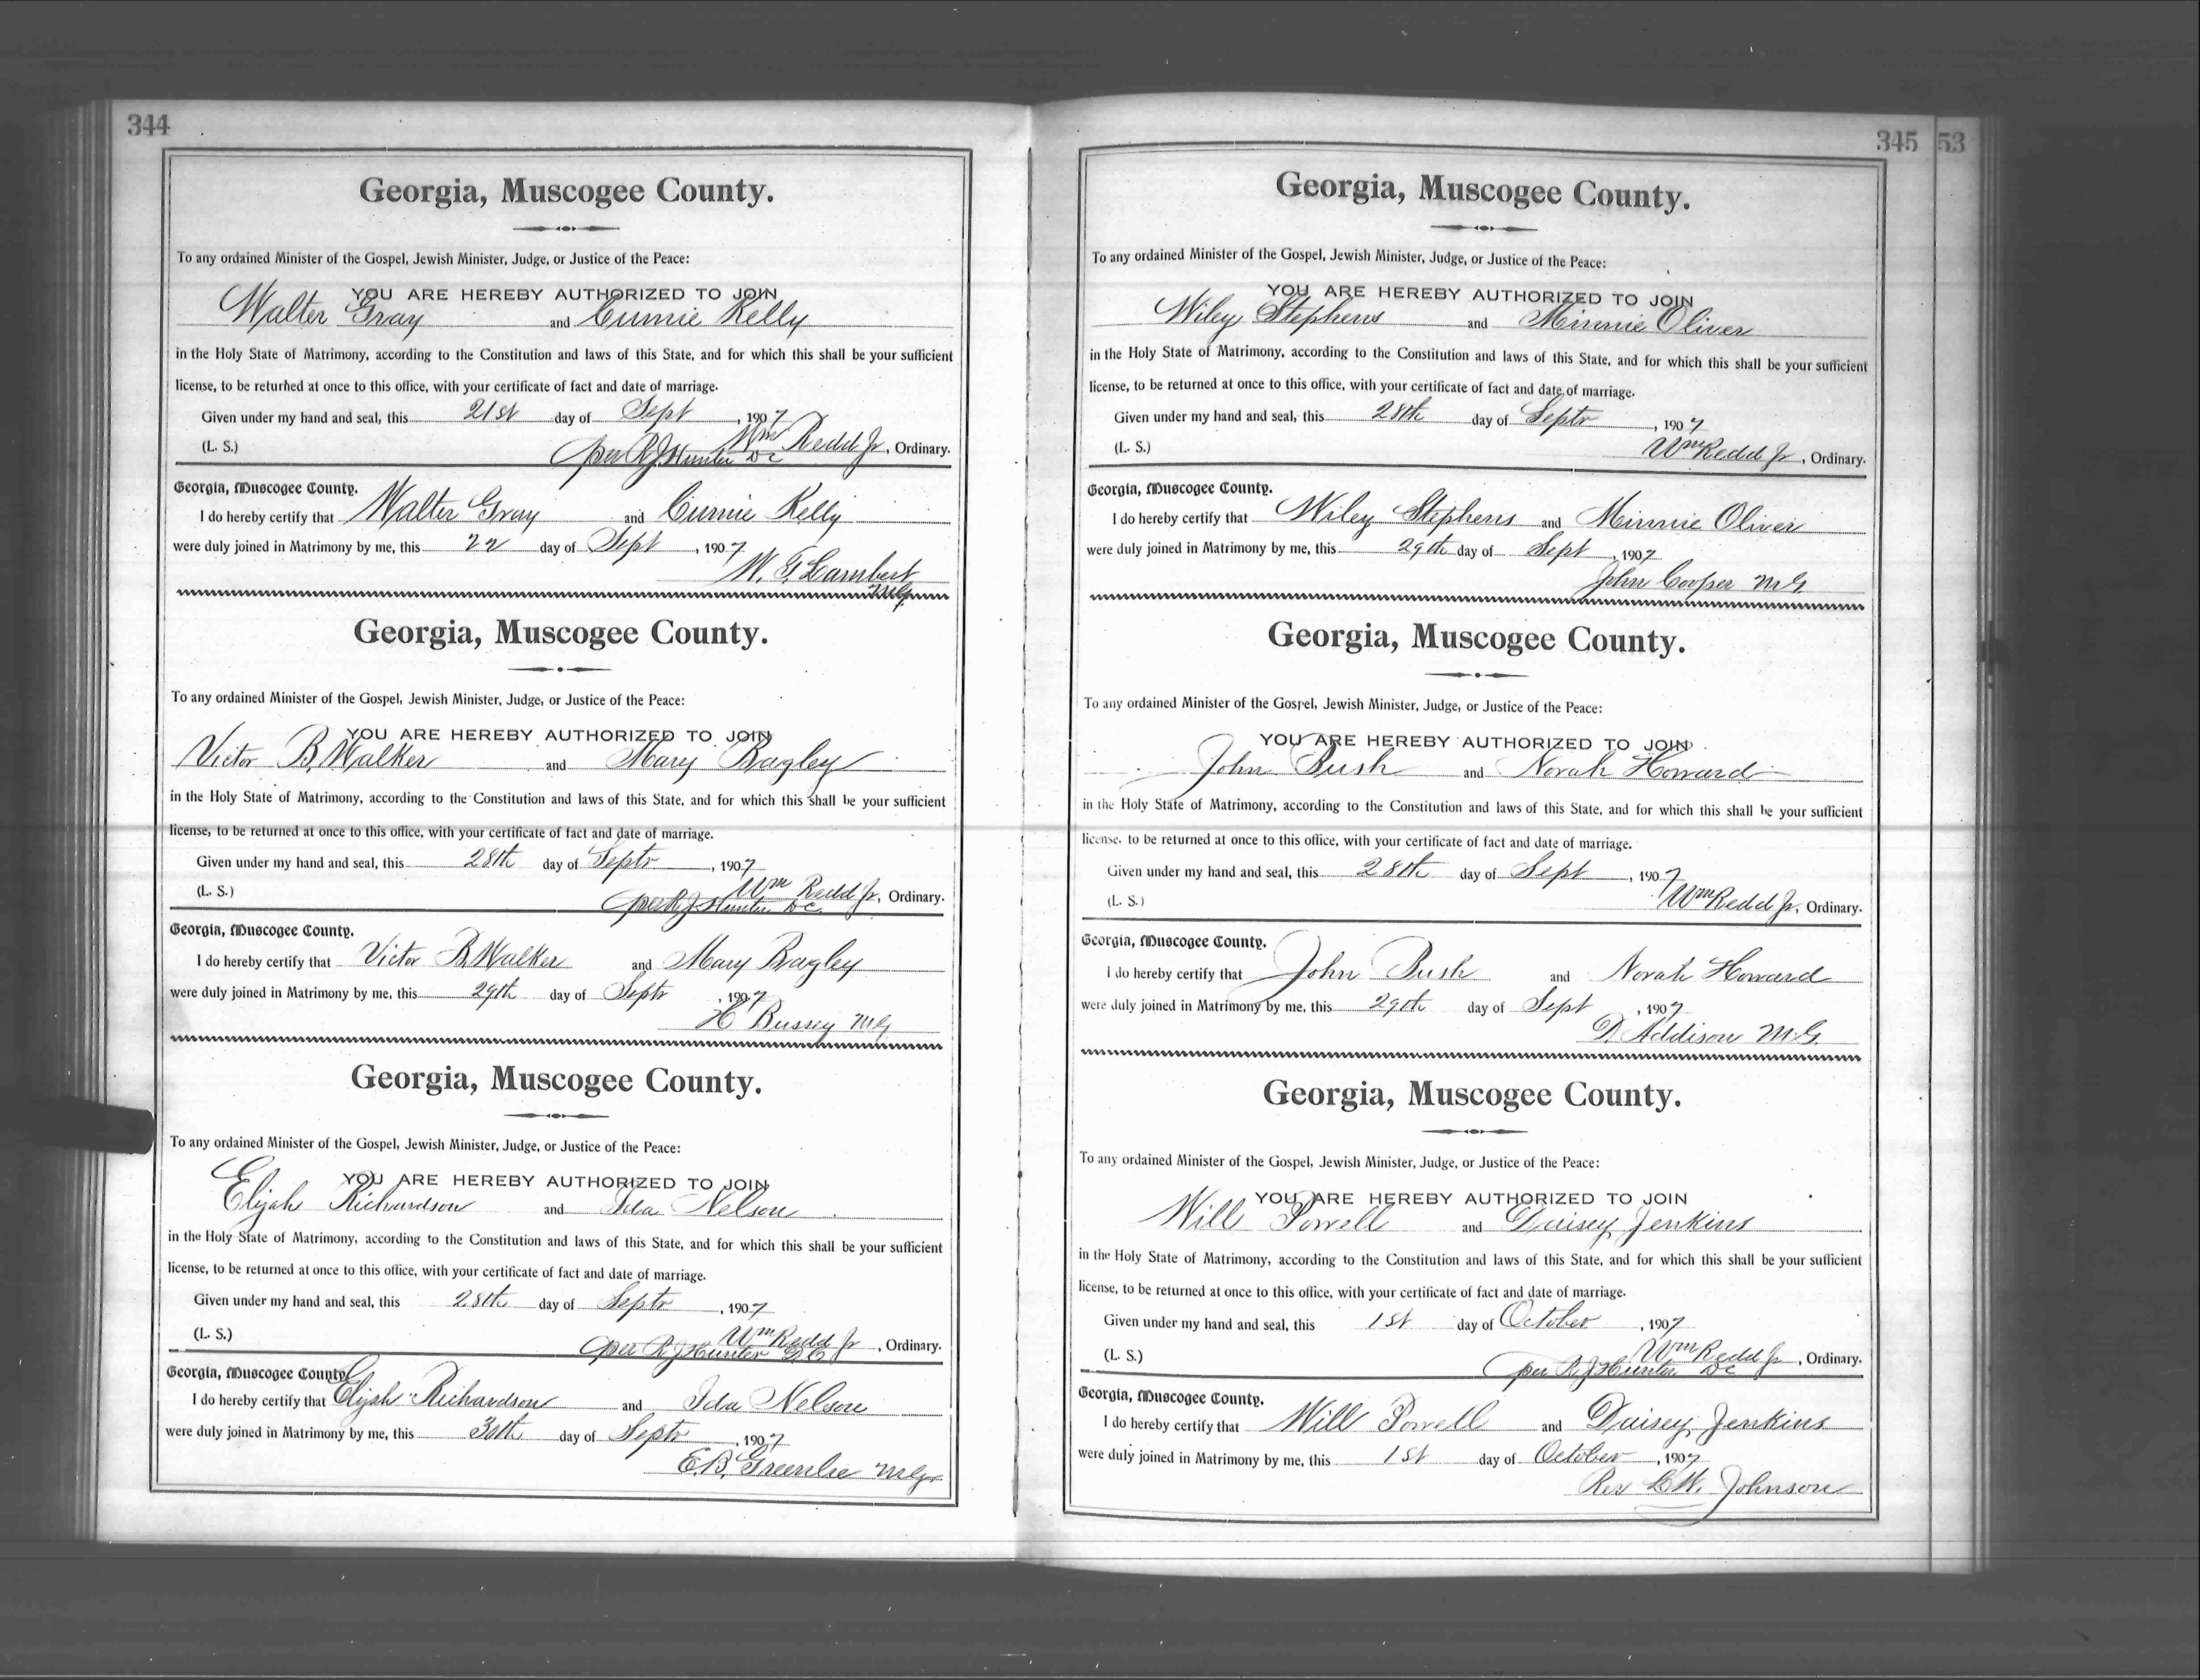 344
Georgia, Muscogee County.
To any ordained Minister of the Gospel, Jewish Minister, Judge, or Justice of the Peace:
YOU ARE HEREBY AUTHORIZED TO JOIN
Walter Gray and Cunnie Kelly
in the Holy State of Matrimony, according to the Constitution and laws of this State, and for which this shall be your sufficient
license, to be returned at once to this office, with your certificate of fact and date of marriage.
Given under my hand and seal, this 21st day of Sept, 1907
(L. S.) Wm Redd Jr, Ordinary.
per R J Hunter DC
Georgia, Muscogee County.
I do hereby certify that Walter Gray and Cunnie Kelly
were duly joined in Matrimony by me, this 22 day of Sept, 1907
W. G. Lambert
M.G.
Georgia, Muscogee County.
To any ordained Minister of the Gospel, Jewish Minister, Judge, or Justice of the Peace:
YOU ARE HEREBY AUTHORIZED TO JOIN
Victor B. Walker and Mary Bagley
in the Holy State of Matrimony, according to the Constitution and laws of this State, and for which this shall be your sufficient
license, to be returned at once to this office, with your certificate of fact and date of marriage.
Given under my hand and seal, this 28th day of Septr, 1907
(L. S.) Wm Redd Jr, Ordinary.
per R J Hunter DC.
Georgia, Muscogee County.
I do hereby certify that Victor B. Walker and Mary Bagley
were duly joined in Matrimony by me, this 29th day of Septr, 1907
H Bussey MG
Georgia, Muscogee County.
To any ordained Minister of the Gospel, Jewish Minister, Judge, or Justice of the Peace:
YOU ARE HEREBY AUTHORIZED TO JOIN
Elijah Richardson and Ida Nelson
in the Holy State of Matrimony, according to the Constitution and laws of this State, and for which this shall be your sufficient
license, to be returned at once to this office, with your certificate of fact and date of marriage.
Given under my hand and seal, this 28th day of Septr, 1907
(L. S.) Wm Redd Jr, Ordinary.
per R J Hunter D.C
Georgia, Muscogee County.
I do hereby certify that Elijah Richardson and Ida Nelson
were duly joined in Matrimony by me, this 30th day of Septr, 1907
E.B. Greenlee MG
345 53
Georgia, Muscogee County.
To any ordained Minister of the Gospel, Jewish Minister, Judge, or Justice of the Peace:
YOU ARE HEREBY AUTHORIZED TO JOIN
Wiley Stephens and Minnie Oliver
in the Holy State of Matrimony, according to the Constitution and laws of this State, and for which this shall be your sufficient
license, to be returned at once to this office, with your certificate of fact and date of marriage.
Given under my hand and seal, this 28th day of Septr, 1907
(L. S.) Wm Redd Jr, Ordinary.
Georgia, Muscogee County.
I do hereby certify that Wiley Stephens and Minnie Oliver
were duly joined in Matrimony by me, this 29th day of Sept, 1907
John Cooper M.G.
Georgia, Muscogee County.
To any ordained Minister of the Gospel, Jewish Minister, Judge, or Justice of the Peace:
YOU ARE HEREBY AUTHORIZED TO JOIN
John Bush and Norah Howard
in the Holy State of Matrimony, according to the Constitution and laws of this State, and for which this shall be your sufficient
license, to be returned at once to this office, with your certificate of fact and date of marriage.
Given under my hand and seal, this 28th day of Sept, 1907
(L. S.) Wm Redd Jr, Ordinary.
Georgia, Muscogee County.
I do hereby certify that John Bush and Norah Howard
were duly joined in Matrimony by me, this 29th day of Sept, 1907
D. Addison M.G.
Georgia, Muscogee County.
To any ordained Minister of the Gospel, Jewish Minister, Judge, or Justice of the Peace:
YOU ARE HEREBY AUTHORIZED TO JOIN
Will Powell and Daisey Jenkins
in the Holy State of Matrimony, according to the Constitution and laws of this State, and for which this shall be your sufficient
license, to be returned at once to this office, with your certificate of fact and date of marriage.
Given under my hand and seal, this 1st day of October, 1907
(L. S.) Wm Redd Jr, Ordinary.
per R J Hunter DC
Georgia, Muscogee County.
I do hereby certify that Will Powell and Daisey Jenkins
were duly joined in Matrimony by me, this 1st day of October, 1907
Rev L W. Johnson